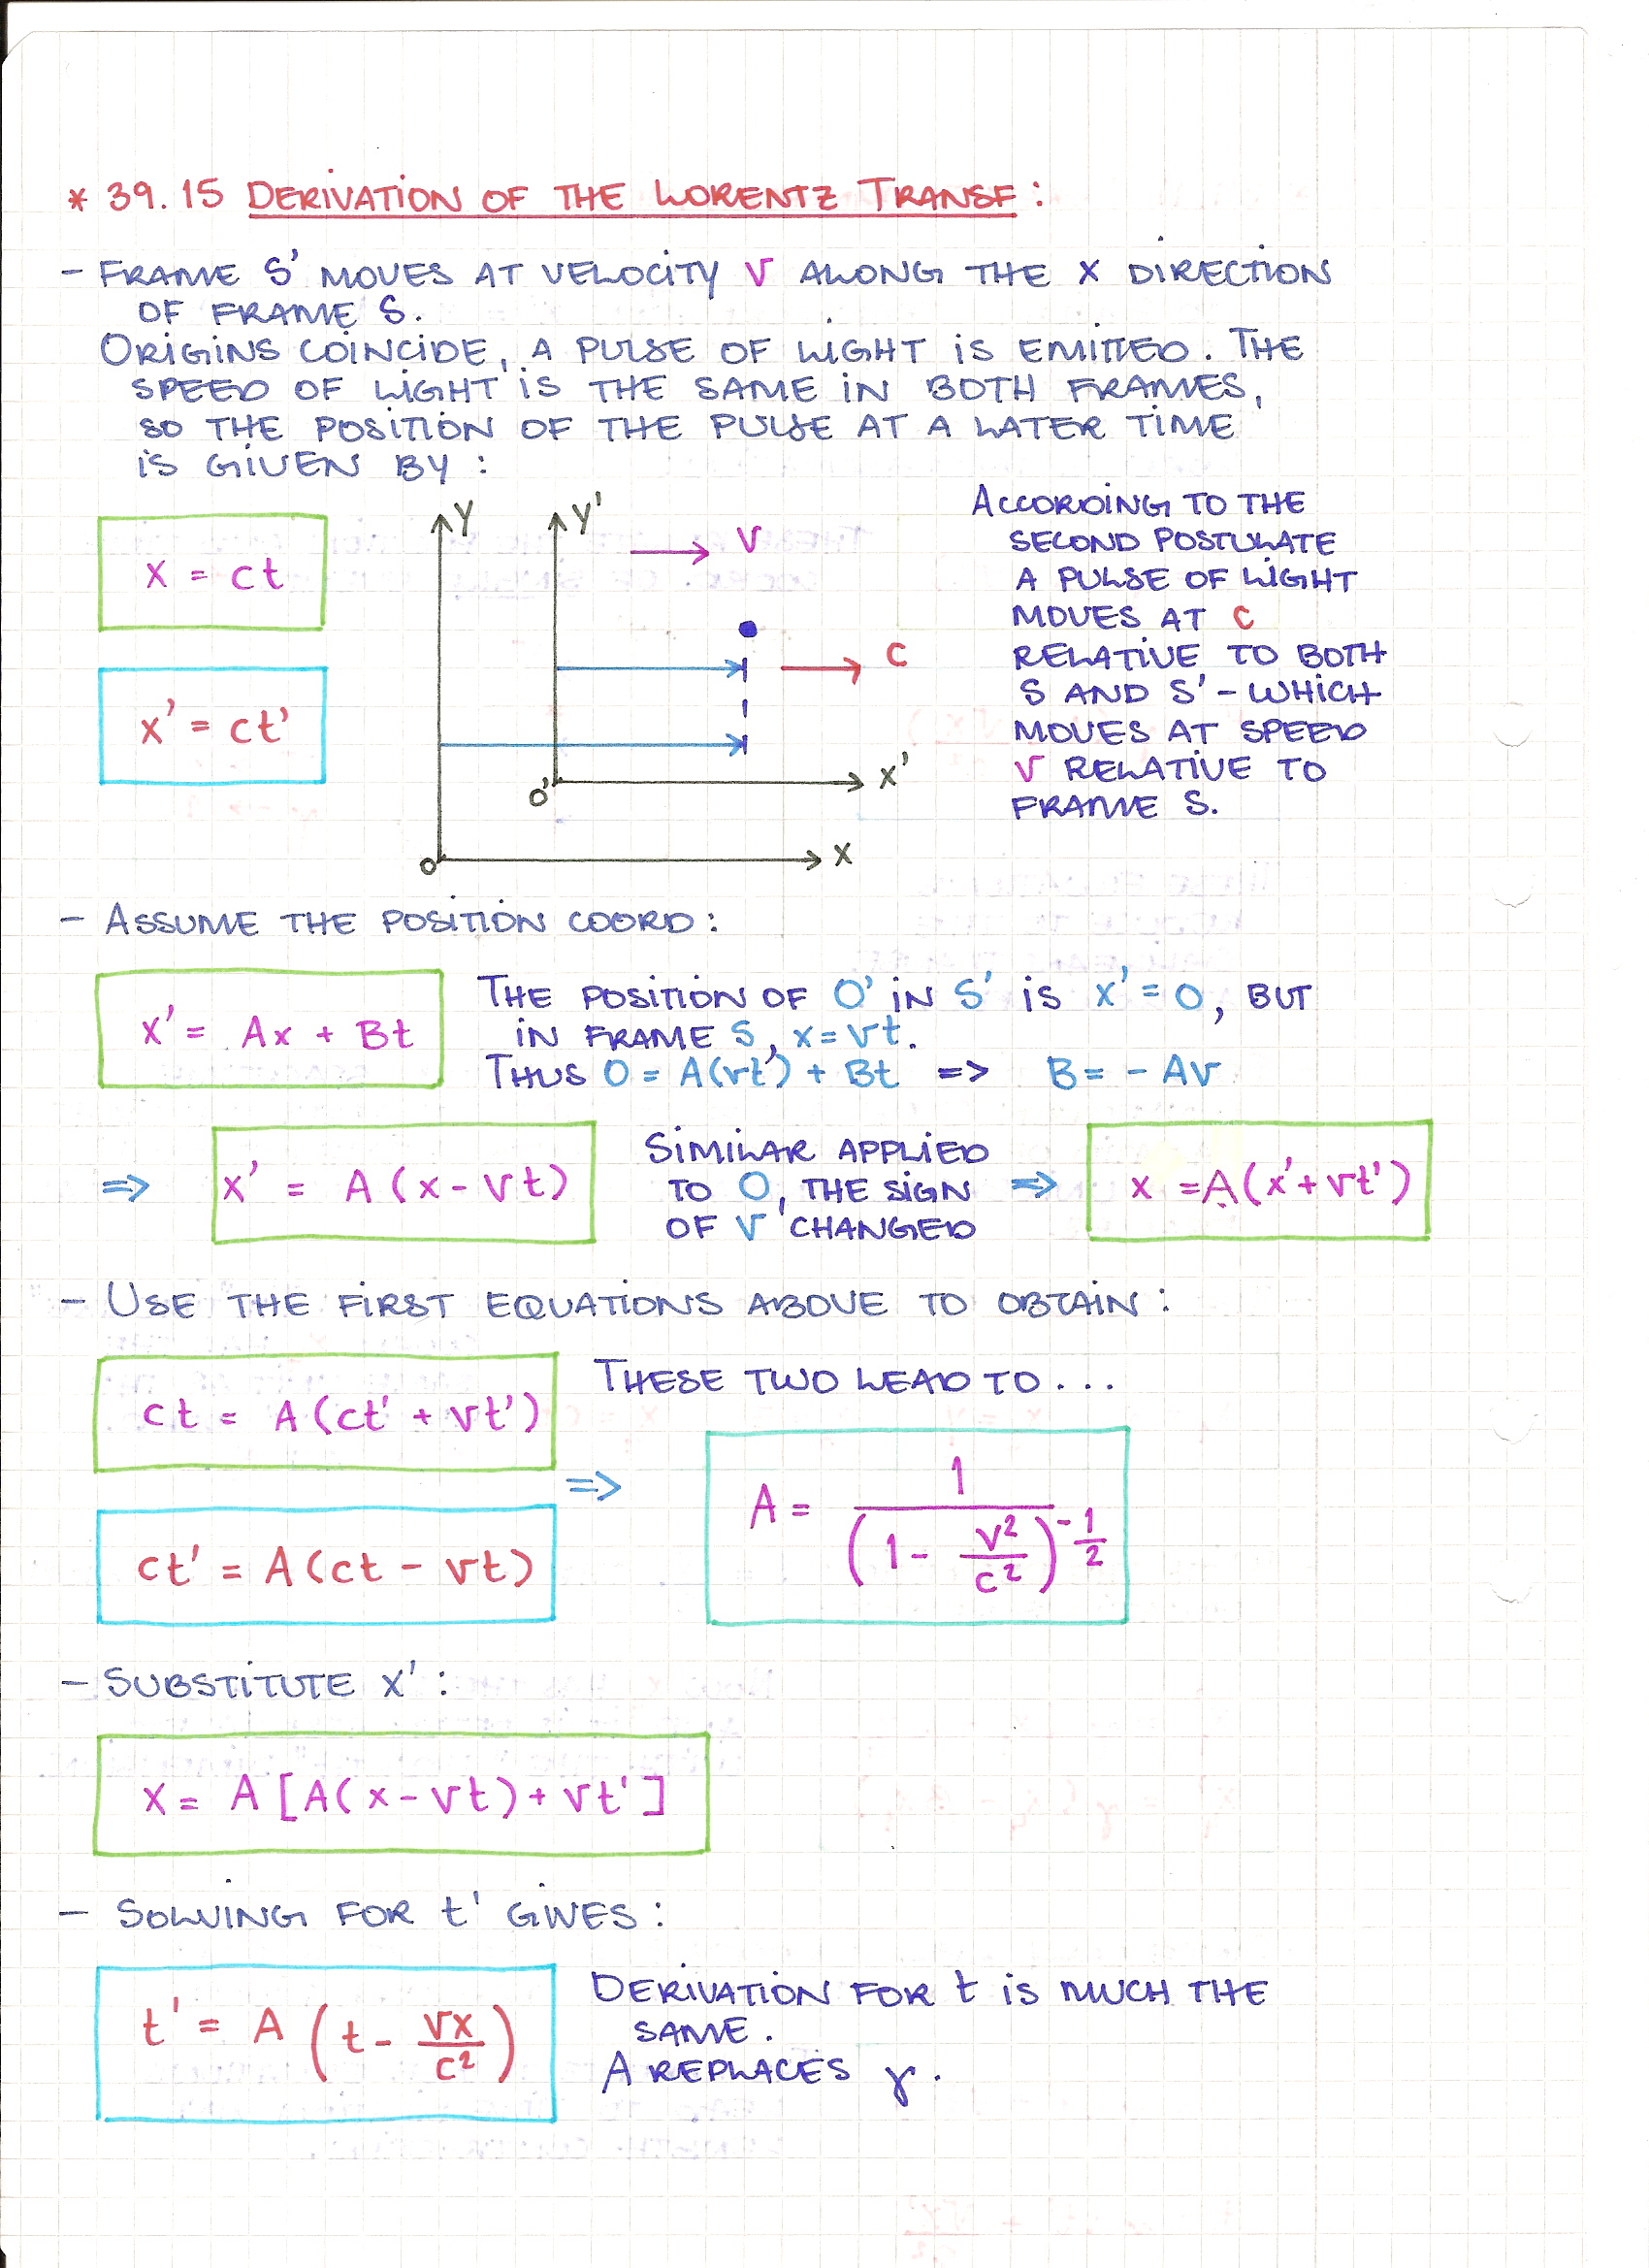 * 39.15 DERIVATION OF THE LORENTZ TRANSF:
- FRAME S' MOVES AT VELOCITY v ALONG THE X DIRECTION
OF FRAME S.
ORIGINS COINCIDE, A PULSE OF LIGHT IS EMITTED. THE
SPEED OF LIGHT IS THE SAME IN BOTH FRAMES,
SO THE POSITION OF THE PULSE AT A LATER TIME
IS GIVEN BY:
x = ct
x' = ct'
Y
Y'
v
c
x'
O'
x
O
ACCORDING TO THE
SECOND POSTULATE
A PULSE OF LIGHT
MOVES AT C
RELATIVE TO BOTH
S AND S' - WHICH
MOVES AT SPEED
v RELATIVE TO
FRAME S.
- ASSUME THE POSITION COORD:
x' = Ax + Bt
THE POSITION OF O' IN S' IS x' = 0, BUT
IN FRAME S, x = vt.
THUS 0 = A(vt) + Bt => B = - Av
=> x' = A(x - vt)
SIMILAR APPLIED
TO O, THE SIGN
OF v CHANGED
=> x = A(x' + vt')
- USE THE FIRST EQUATIONS ABOVE TO OBTAIN:
ct = A(ct' + vt')
ct' = A(ct - vt)
THESE TWO LEAD TO...
=> A = 1 / (1 - v²/c²)^-1/2
- SUBSTITUTE x':
x = A[A(x - vt) + vt']
- SOLVING FOR t' GIVES:
t' = A(t - vx/c²)
DERIVATION FOR t IS MUCH THE
SAME.
A REPLACES γ.